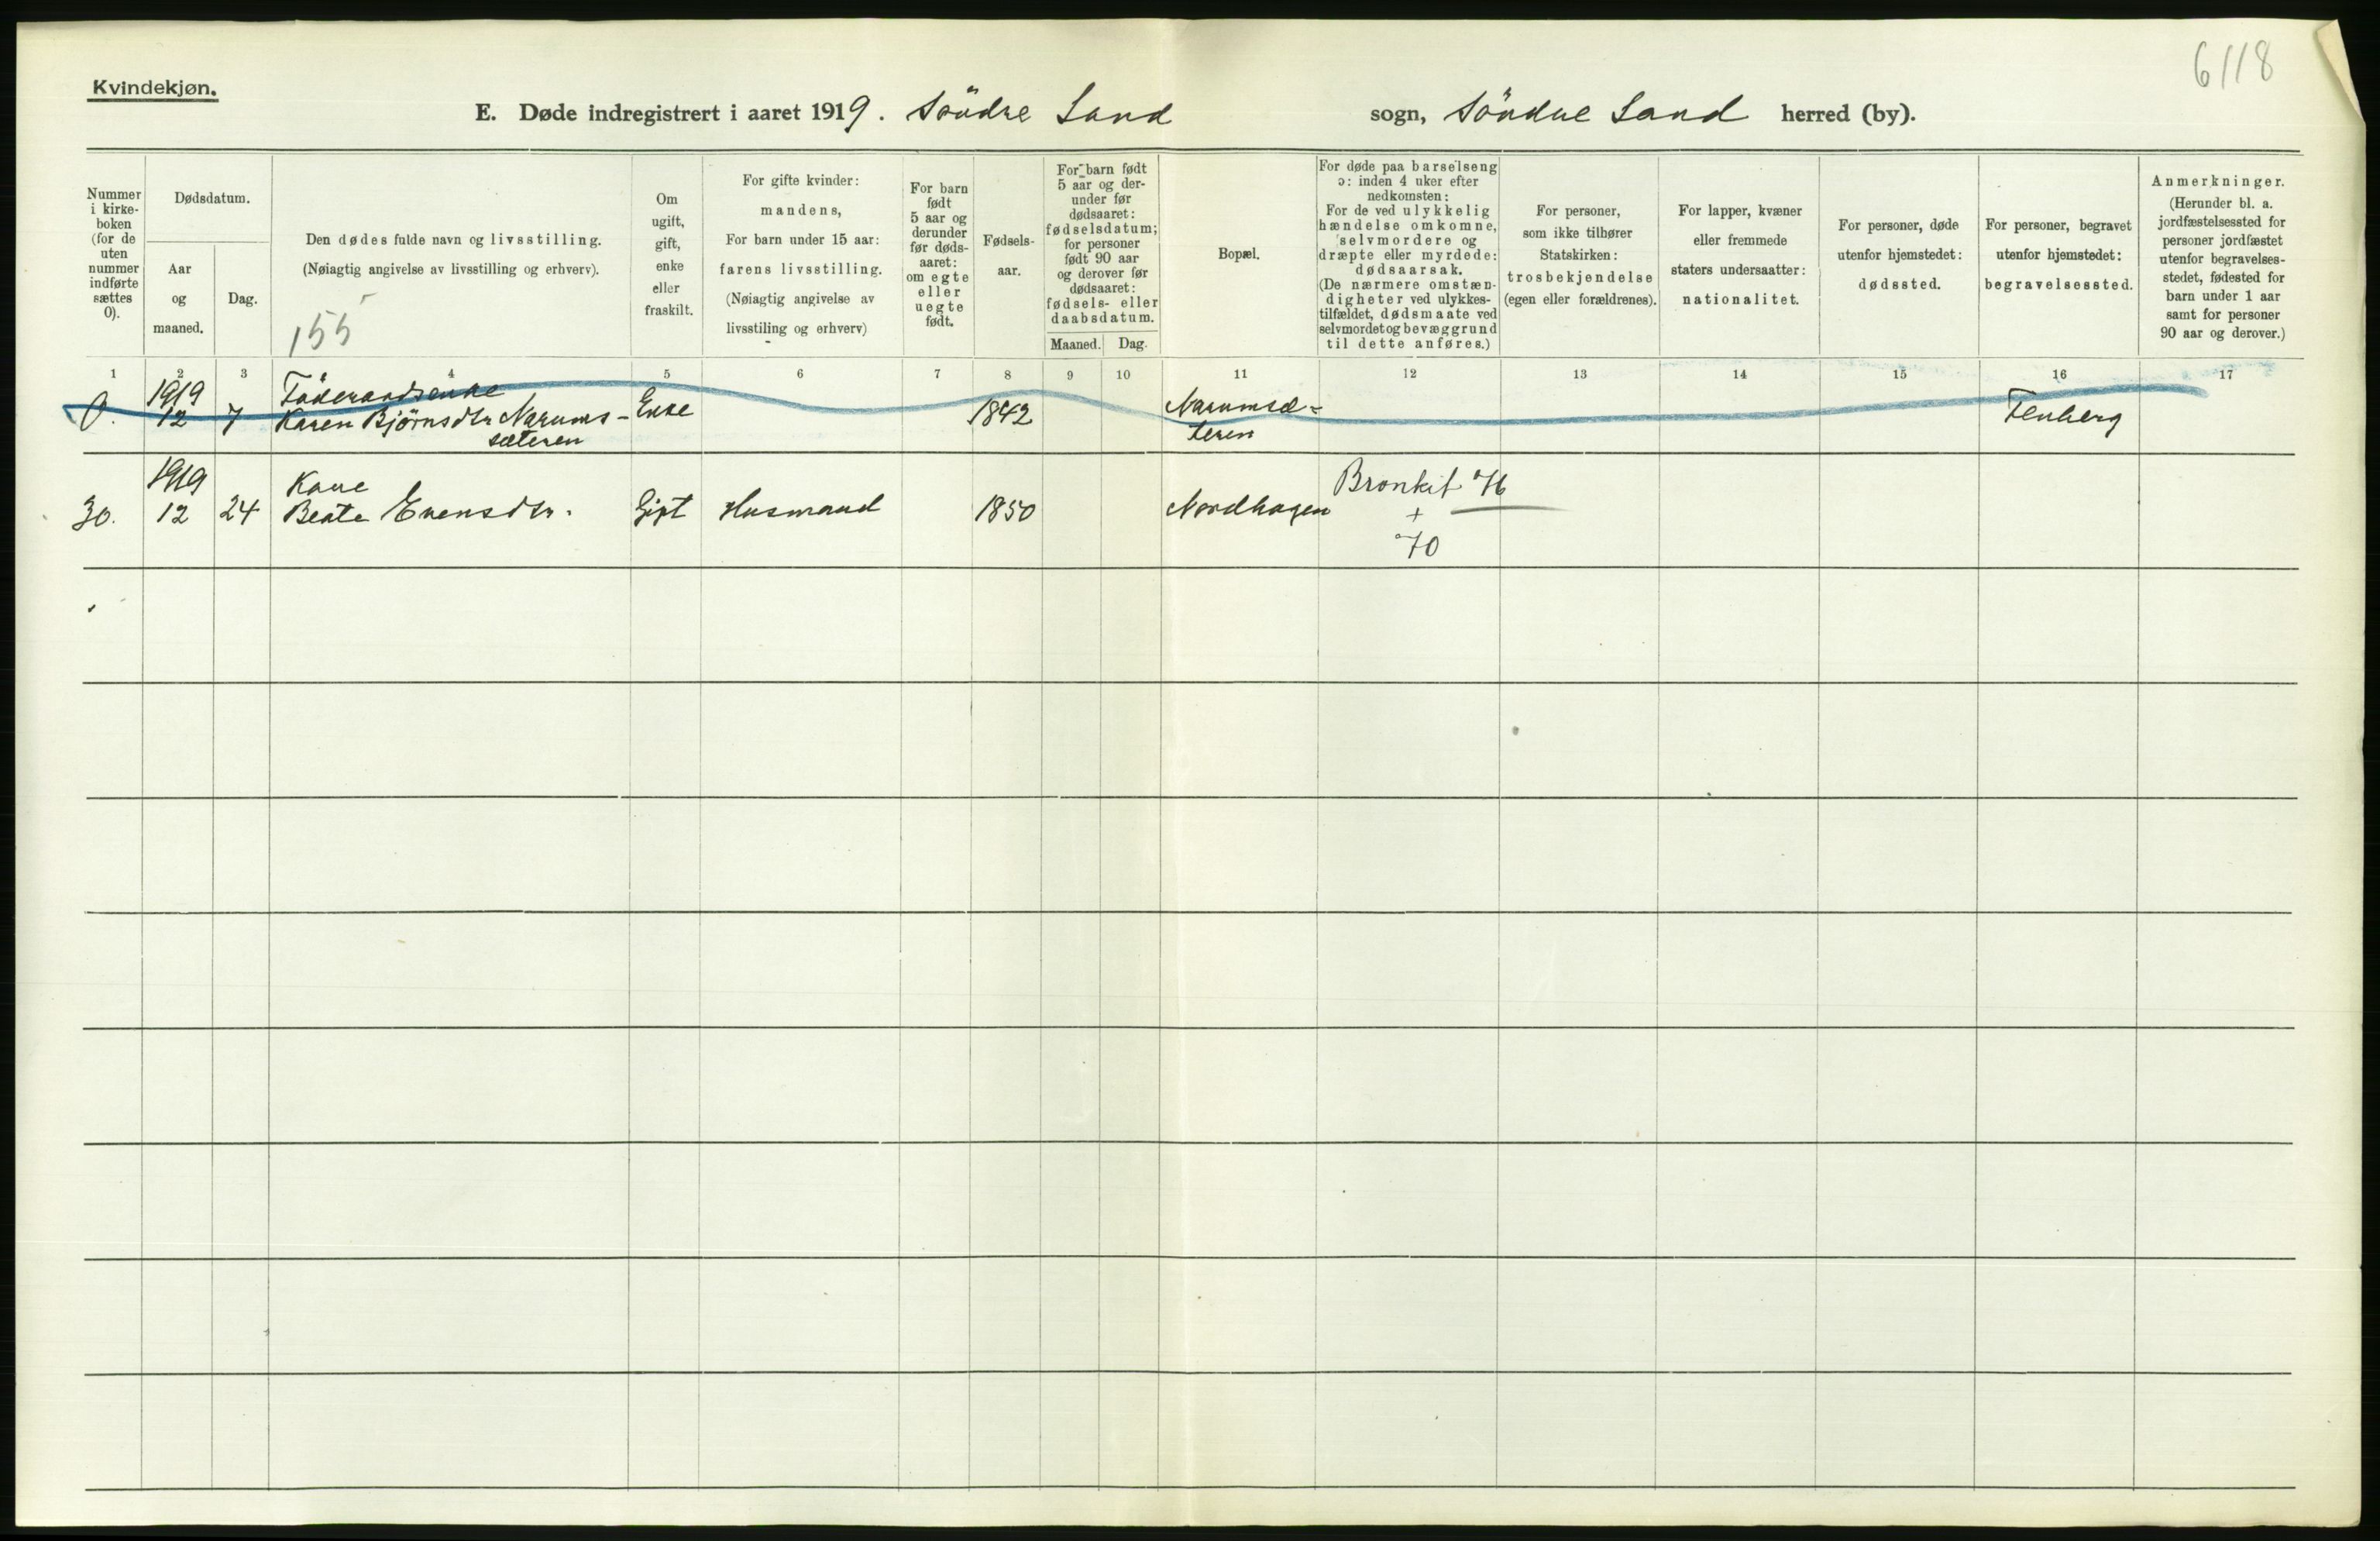 6118
Kvindekjøn.
E. Døde indregistrert i aaret 1919. Söndre Land sogn, Söndre Land herred (by).
Nummer i kirke-boken (for de uten nummer indførte sættes 0).
Dødsdatum.
Aar og maaned.
Dag.
Den dødes fulde navn og livsstilling.
(Nøiagtig angivelse av livsstilling og erhverv).
155
Om ugift, gift, enke eller fraskilt.
For gifte kvinder:
mandens,
For barn under 15 aar:
farens livsstilling.
(Nøiagtig angivelse av
livsstiling og erhverv)
For barn født 5 aar og derunder før døds-aaret: om egte eller uegte født.
Fødsels-aar.
For barn født 5 aar og der-under før dødsaaret: fødselsdatum; for personer født 90 aar og derover før dødsaaret: fødsels- eller daabsdatum.
Maaned. Dag.
Bopæl.
For døde paa barselseng
ɔ: inden 4 uker efter
nedkomsten:
For de ved ulykkelig
hændelse omkomne,
selvmordere og
dræpte eller myrdede:
dødsaarsak.
(De nærmere omstæn-
digheter ved ulykkes-
tilfældet, dødsmaate ved
selvmordet og bevæggrund
til dette anføres.)
For personer,
som ikke tilhører
Statskirken:
trosbekjendelse
(egen eller forældrenes).
For lapper, kvæner
eller fremmede
staters undersaatter:
nationalitet.
For personer, døde
utenfor hjemstedet:
dødssted.
For personer, begravet
utenfor hjemstedet:
begravelsessted.
Anmerkninger.
(Herunder bl. a.
jordfæstelsessted for
personer jordfæstet
utenfor begravelses-
stedet, fødested for
barn under 1 aar
samt for personer
90 aar og derover.)
1 2 3 4 5 6 7 8 9 10 11 12 13 14 15 16 17
1919 Föderaadsenke Narumsæ-
0. 12 7 Karen Björnsdtr Narums- Enke 1842 teren Fluberg
sæteren
1919 Kone Bronkit 76
30. 12 24 Beate Evensdtr. Gift Husmand 1850 Nordhagen +
70